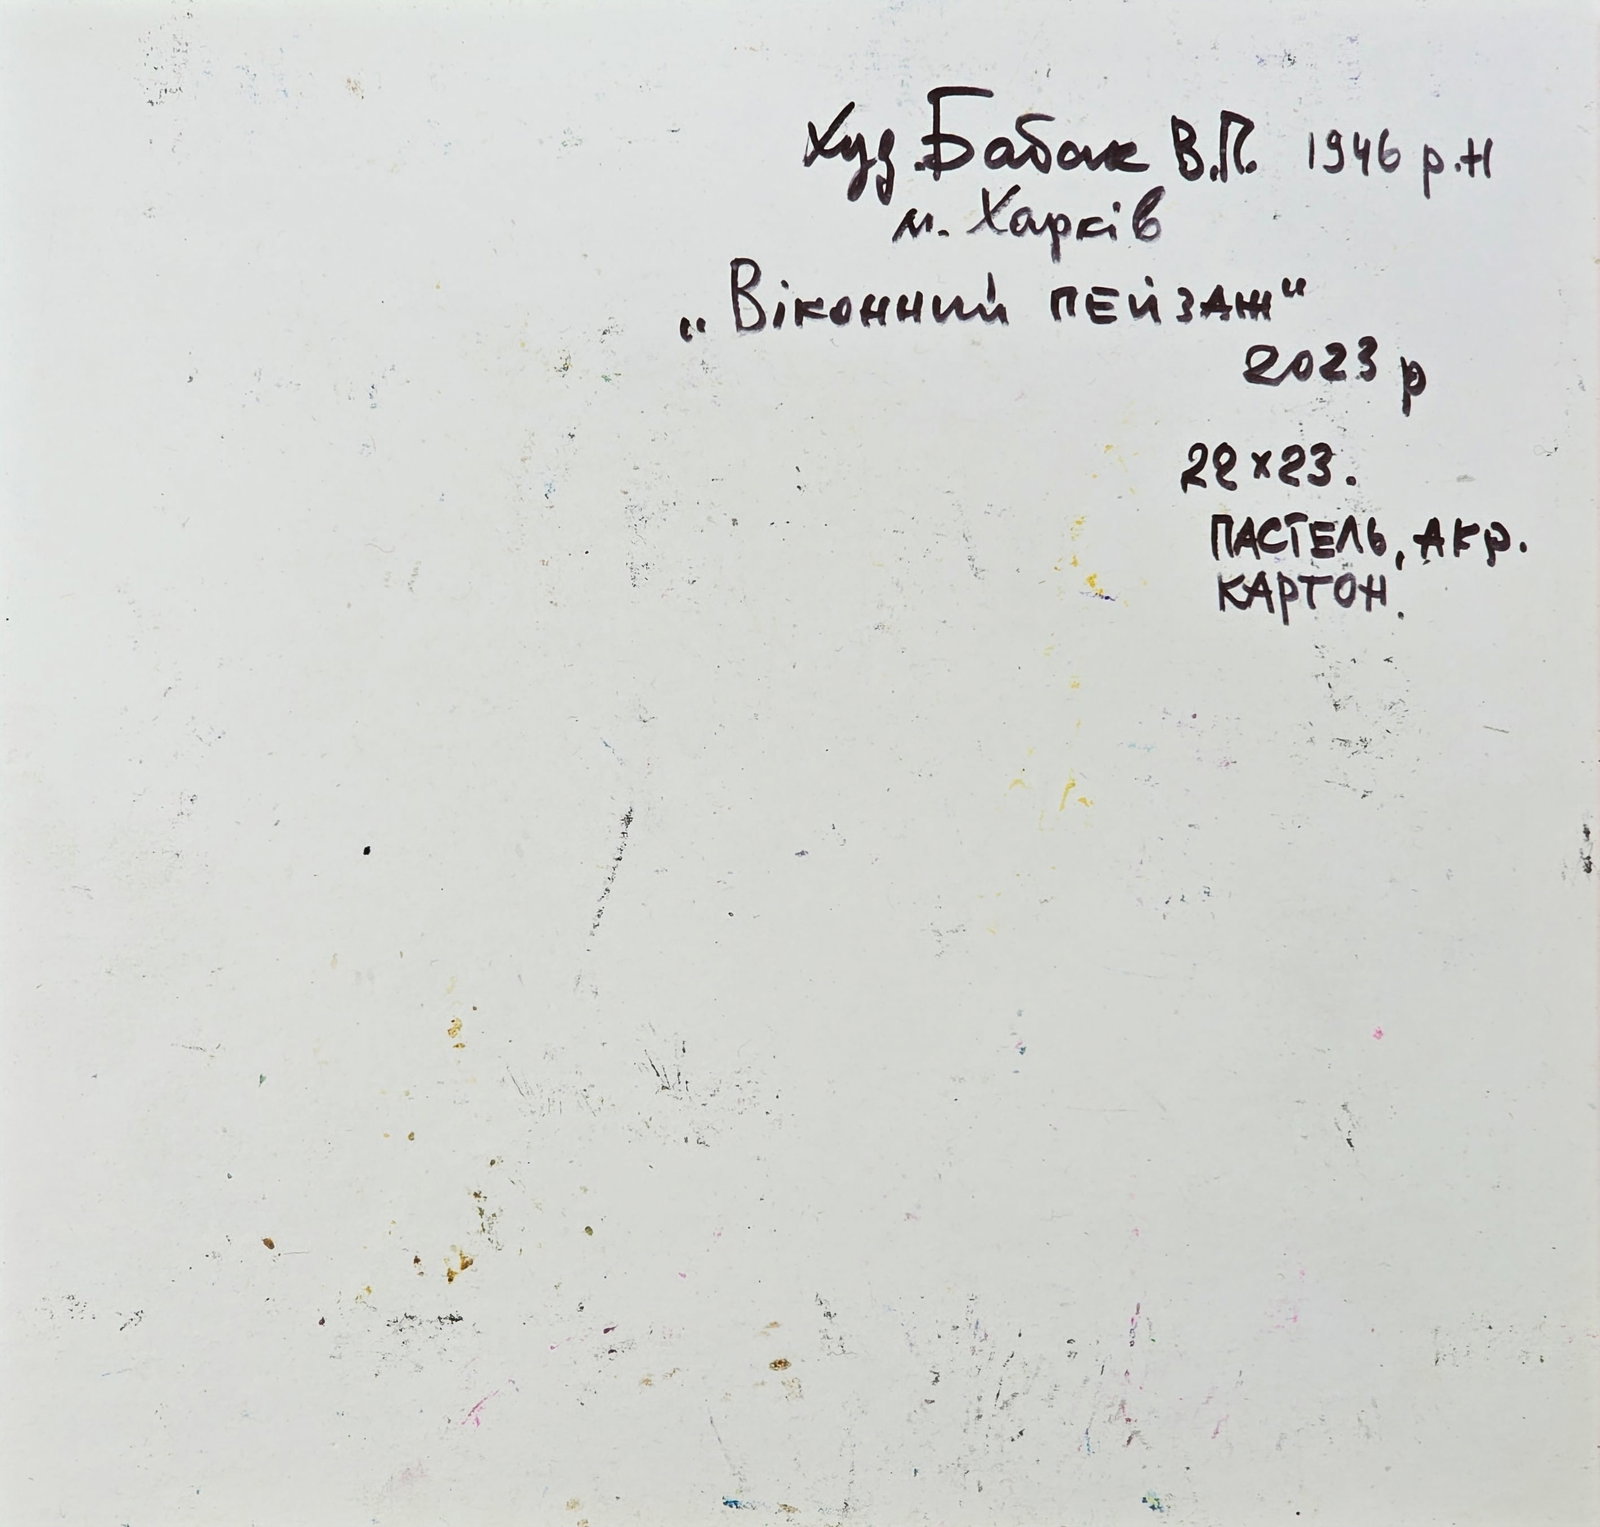 Худ. Бабак В.П. 1946 р.н
м. Харків
„Віконний пейзаж“
2023 р
22×23.
ПАСТЕЛЬ, АКР.
КАРТОН.